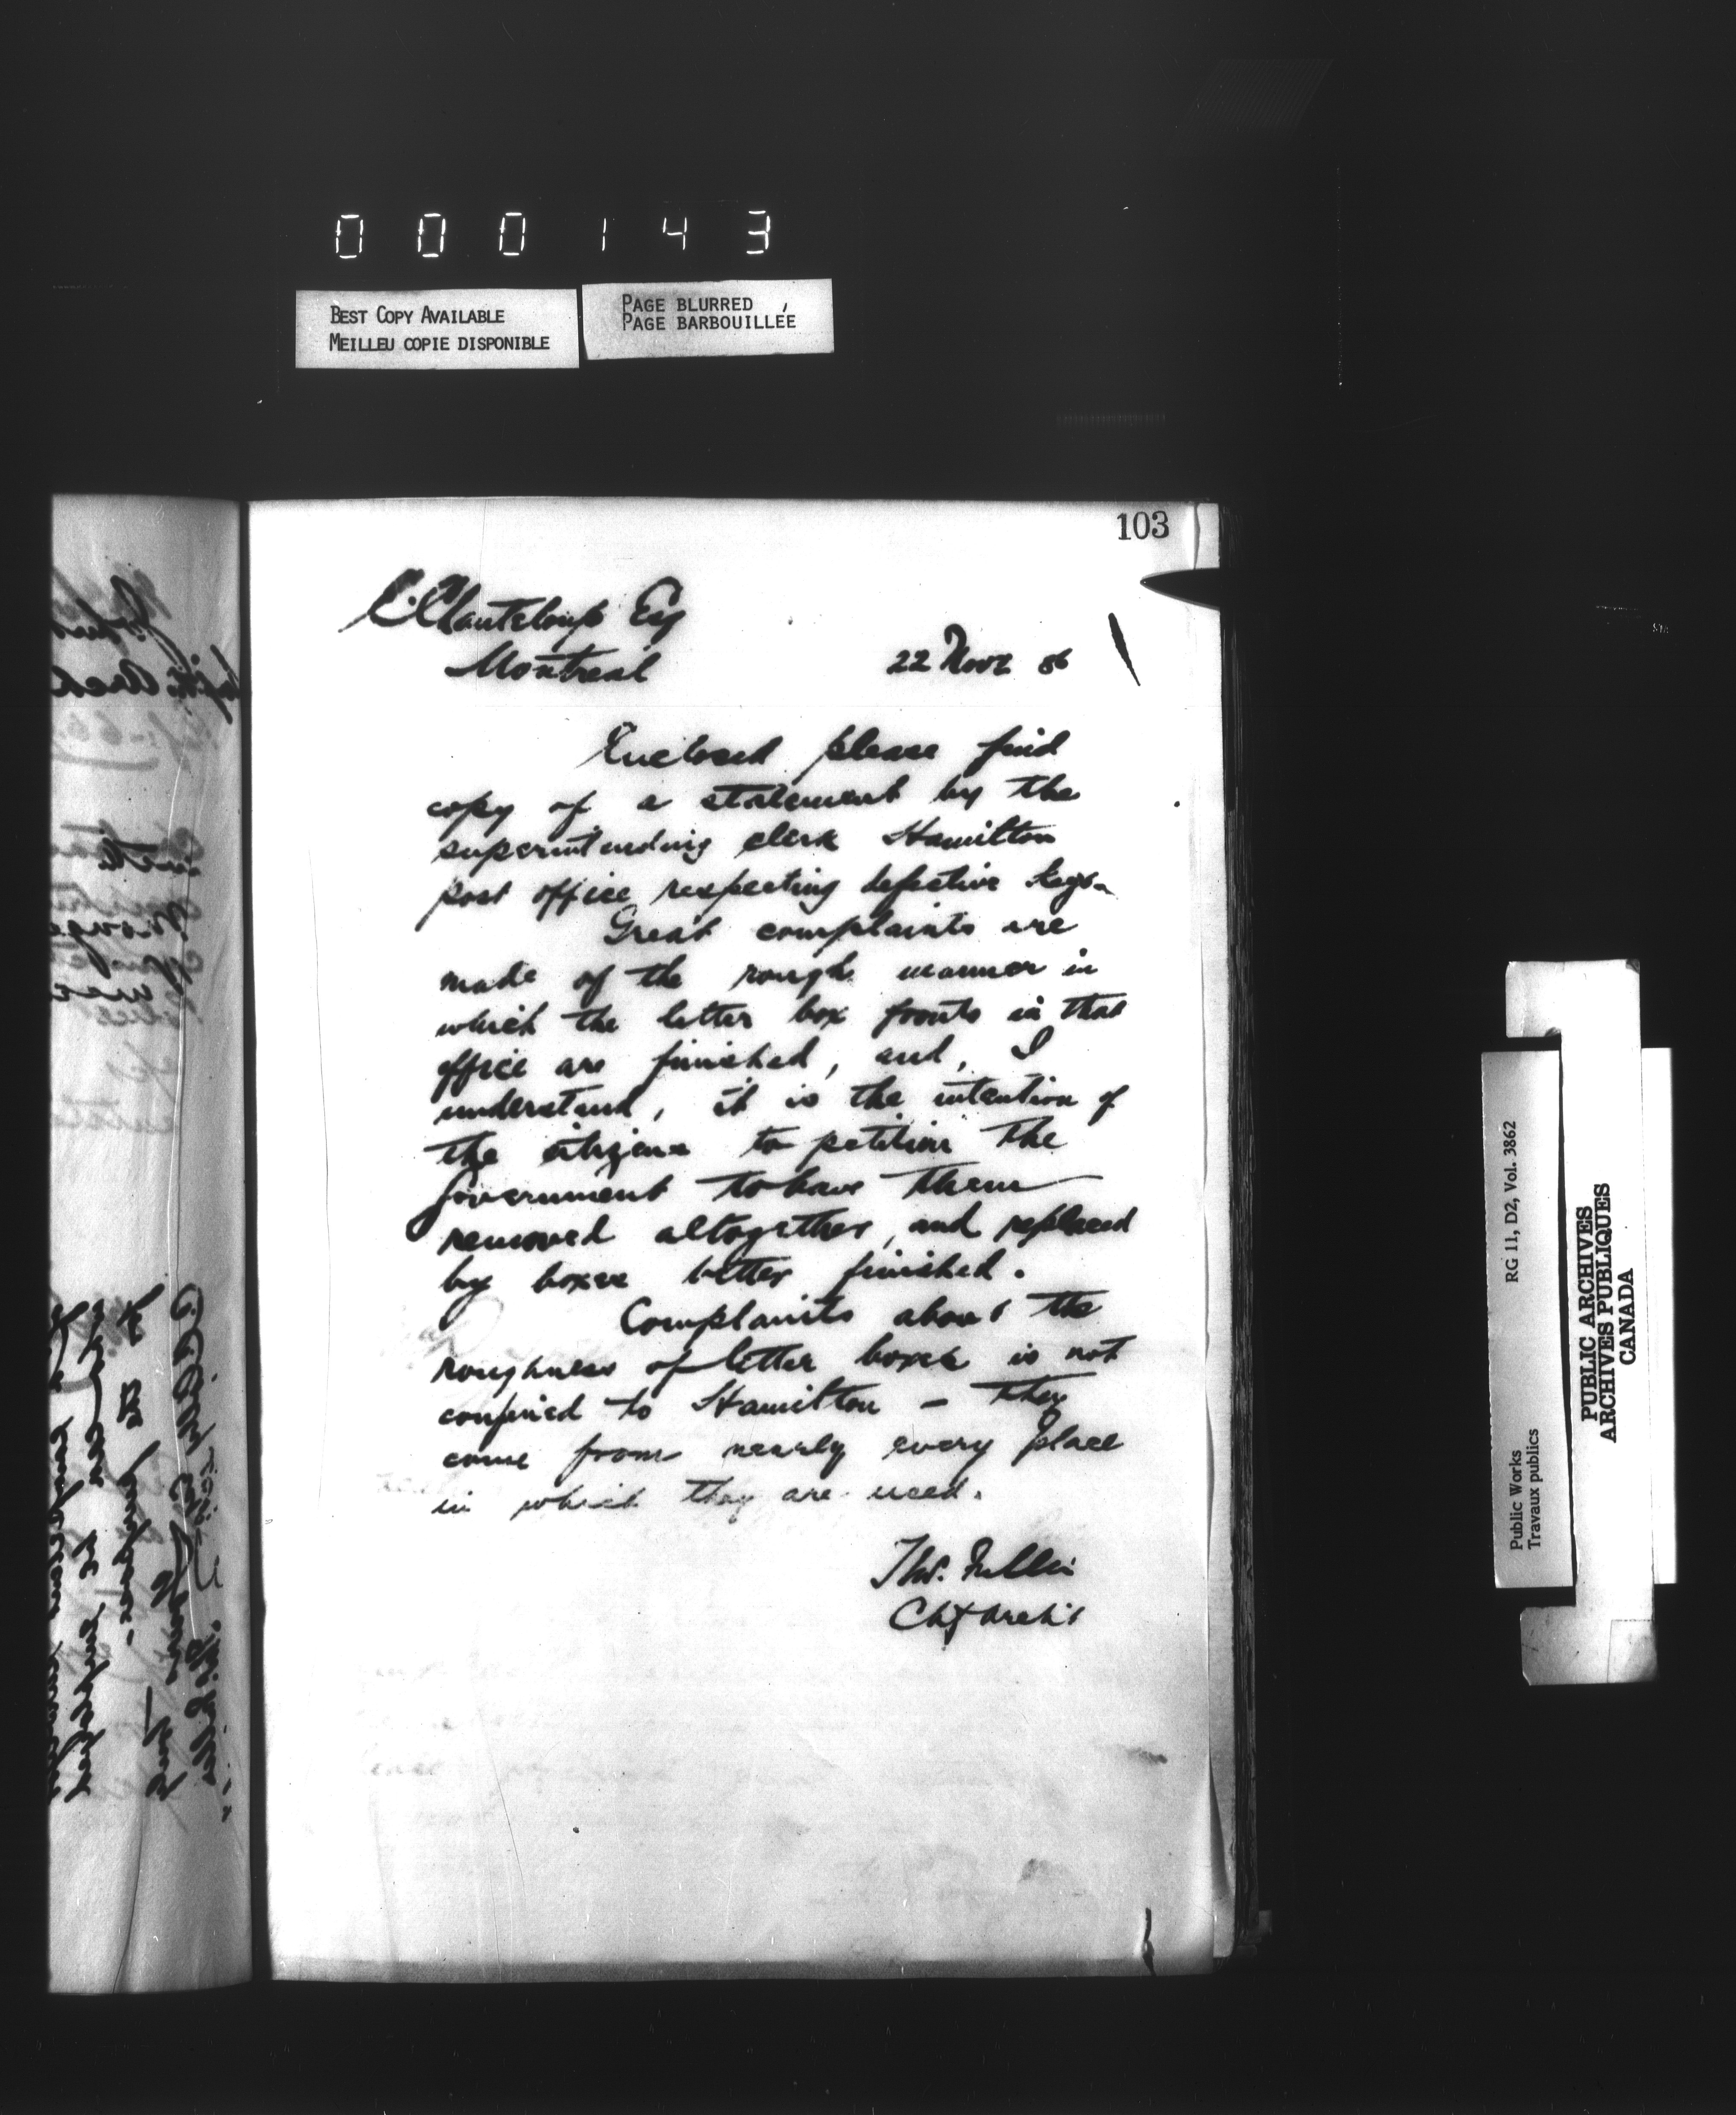 000143
BEST COPY AVAILABLE
MEILLEU COPIE DISPONIBLE
PAGE BLURRED
PAGE BARBOUILLÉE
103
E. Chanteloup Esq
Montreal
22 Novr 86
Enclosed please find
copy of a statement by the
superintending clerk Hamilton
post office respecting defective keys.
Great complaints are
made of the rough manner in
which the letter box fronts in that
office are finished, and, I
understand, it is the intention of
the citizens to petition the
Government to have them
removed altogether, and replaced
by boxes better finished.
Complaints about the
roughness of letter boxes is not
confined to Hamilton – they
come from nearly every place
in which they are used.
Thos. Fuller
Chf Archt
RG 11, D2, Vol. 3862
Public Works
Travaux publics
PUBLIC ARCHIVES
ARCHIVES PUBLIQUES
CANADA